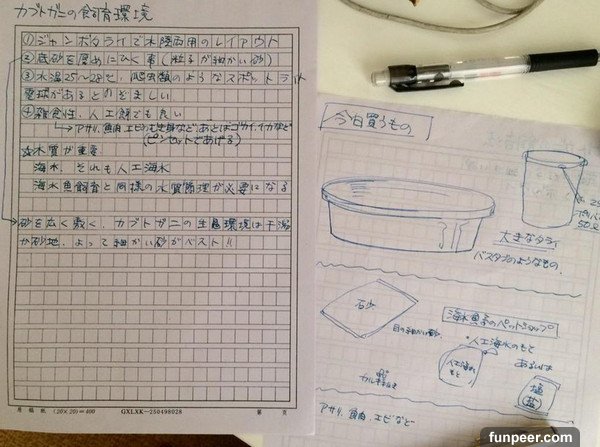 カブトガニの飼育環境
①ジャンボタライで水陸両用のレイアウト
②底砂を厚めにひく事(粒子が細かい砂)
③水温25~28℃、爬虫類のようなスポットライト
電球があるとのぞましい
④雑食性、人工餌でも良い
→アサリ、魚肉、エビのむき身など、あとはゴカイ、イカなど
(ピンセットであげる)
☆水質が重要
海水、それも人工海水
海水魚飼育と同様の水質管理が必要になる
砂を広く敷く、カブトガニの生息環境は干潟
か砂地、よって細かい砂がベスト!!
原稿紙 (20×20)=400 GXLXK-250498028 第 頁
今日買うもの
50ℓ
大きなタライ
バスタブのようなもの
石少
目の細かい
海水魚系のペットショップ
・人工海水のもと
人工海水のもと
あるいは
塩
(塩)
カルキぬき
アサリ、魚肉、エビなど
funpeer.com